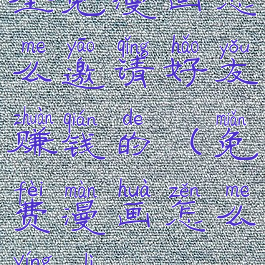 me yāo qǐng hǎo yǒu
么邀请好友
zhuàn qián de miǎn
赚钱的（免
fèi màn huà zěn me
费漫画怎么
yíng lì